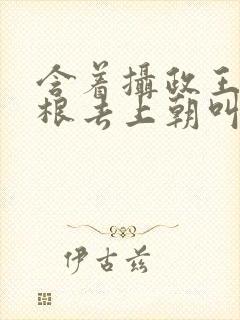 含着攝政王
根去上朝叫
伊古兹